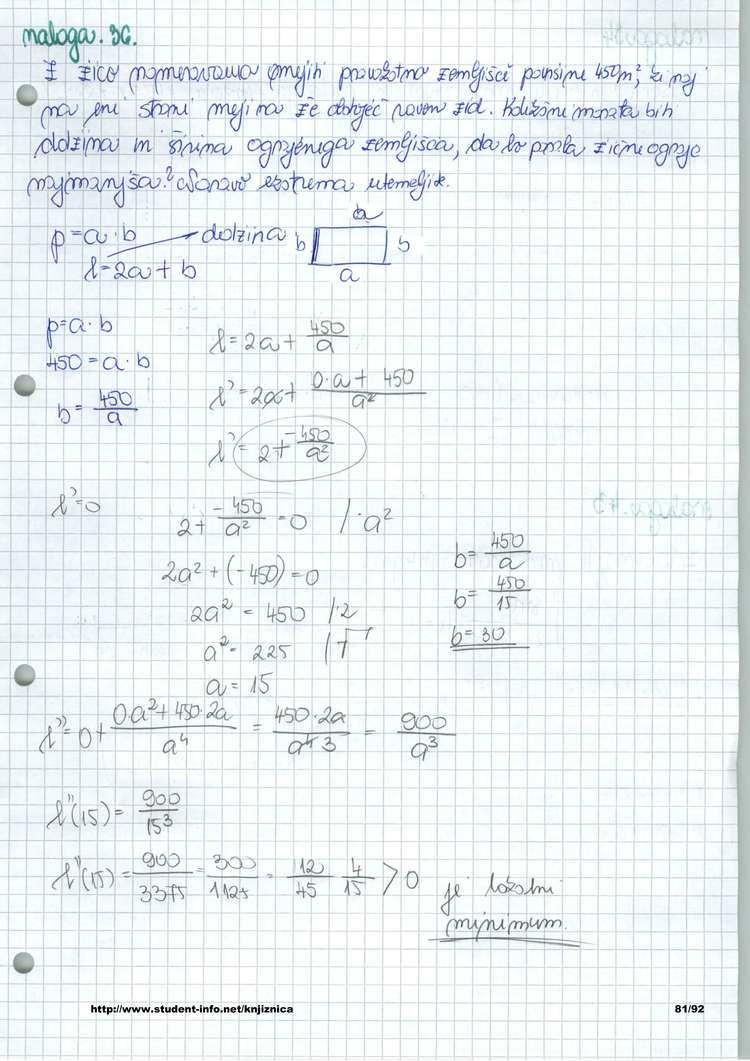 naloga. 36.
Z žico nameravamo omejiti pravokotno zemljišče površine 450m², ki naj
na eni strani meji na že obstoječ raven zid. Kolikšni morata biti
dolžina in širina ograjenega zemljišča, da bo poraba žične ograje
najmanjša? Naravo ekstrema utemelji.
a
p=a·b dolzina b b
l=2a+b
a
p=a·b
l=2a+ 450/a
450=a·b
l'=2a+ 0·a+450/a²
b= 450/a
l'= 2+ -450/a²
l'=0
2+ -450/a² =0 /·a²
b= 450/a
2a²+(-450)=0
b= 450/15
2a² = 450 /:2
b=30
a²= 225 /√
a=15
l''=0+ 0·a²+450·2a/a⁴ = 450·2a/a⁴ 3 = 900/a³
l''(15)= 900/15³
l''(15)= 900/3375 = 300/1125 = 12/45 4/15 >0
je lokalni
minimum.
http://www.student-info.net/knjiznica 81/92